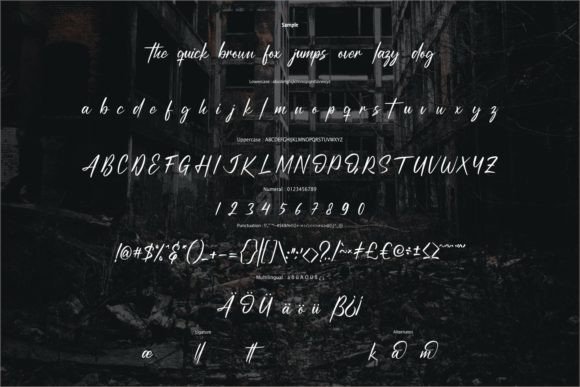 Sample
the quick brown fox jumps over lazy dog
Lowercase : abcdefghijklmnopqrstuvwxyz
a b c d e f g h i j k l m n o p q r s t u v w x y z
Uppercase : ABCDEFGHIJKLMNOPQRSTUVWXYZ
ABCDEFGHIJKLMNOPQRSTUVWXYZ
Numeral : 0123456789
1 2 3 4 5 6 7 8 9 0
Punctuation :
!@#$%^&*()_+-={}|[]\:";'<>?,./~×₤£€©÷±≤≥
Multilingual : ä ö ü Ä Ö Ü ß ¿ ¡
Ä Ö Ü ä ö ü ß¿¡
Ligature Alternates
æ ll tt k a m